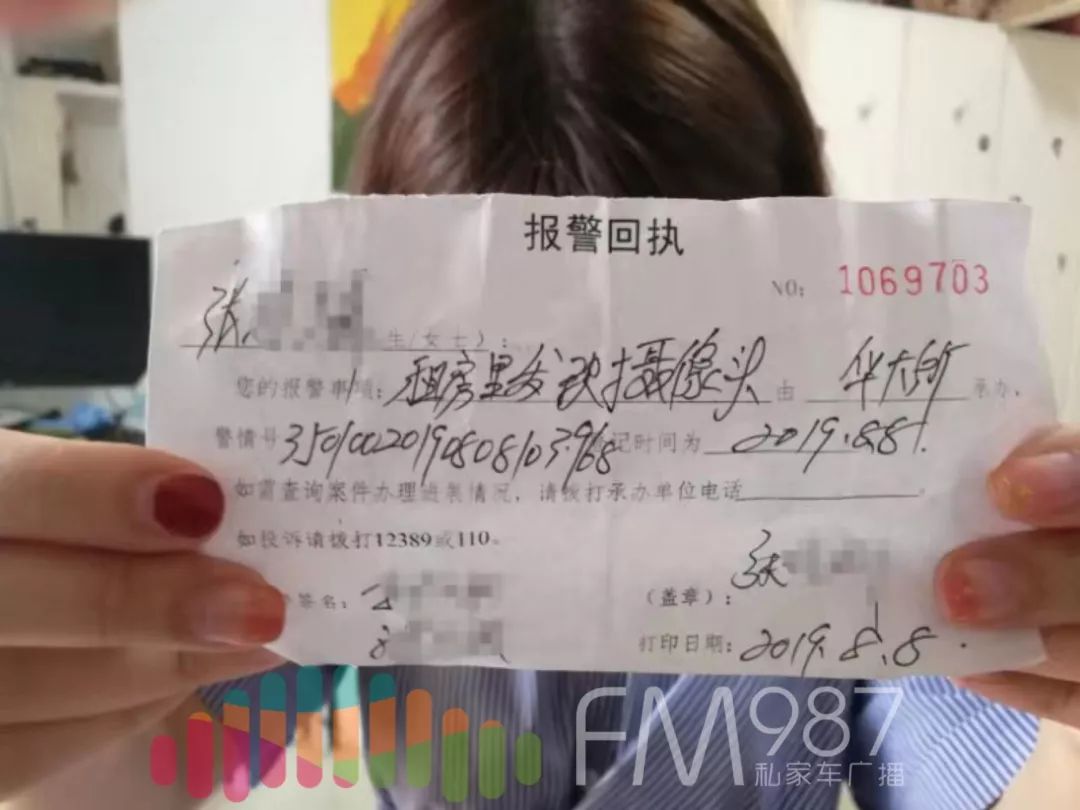 报警回执
NO: 1069703
张 生/女士）：
您的报警事项：租房里发现摄像头 由 华大所 承办，
警情号35010020190808103968 登记时间为 2019.8.8.
如需查询案件办理进展情况，请拨打承办单位电话
如投诉请拨打12389或110。
签名：
（盖章）：张
打印日期：2019.8.8.
FM987
私家车广播